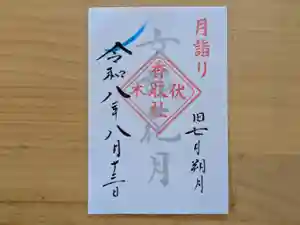 月詣り
旧七月朔月
女郎花月
伏木
香取社
令和八年八月十三日